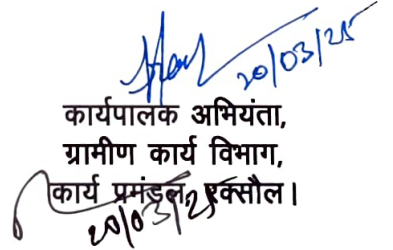 20/03/25
कार्यपालक अभियंता,
ग्रामीण कार्य विभाग,
कार्य प्रमंडल, रक्सौल।
20/03/25